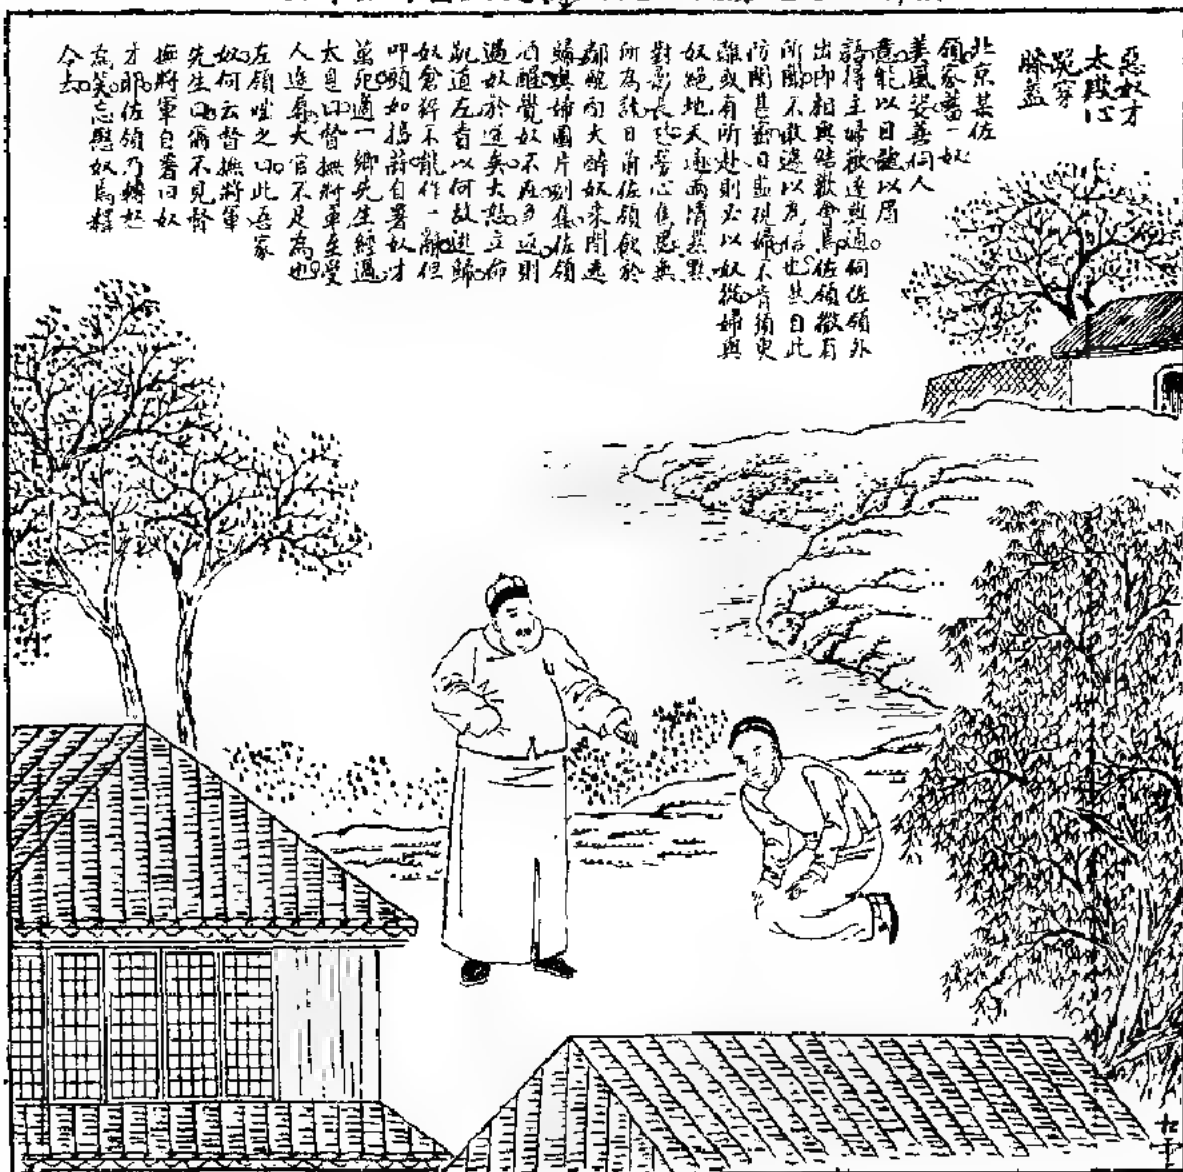 惡奴才
跪穿
膝蓋
北京某佐
領家蓄一奴
美風姿善伺人
意能以目聽以眉
語得主婦歡遂通伺佐領外
出即相與結歡會焉佐領微有
所聞不敢遽以為信也然自此
防閑甚密日監視婦不肯須臾
離或有所赴則必以奴從婦與
奴絕地天通兩情甚黯
對影長吁勞心焦思無
所為計日前佐領飲於
鄰晚間大醉奴來間逃
歸與婦團片刻佐領
酒醒覺奴不在身返則
遇奴於途矣大怒立命
跪道左責以何故逃歸
奴倉猝不能作一辭但
叩頭如搗蒜自署奴才
萬死適一鄉先生經過
太息曰督撫將軍至受
人辱大官不足為也
左領嗤之曰此吾家
奴何云督撫將軍
先生曰爾不見督
撫將軍自署曰奴
才耶佐領乃轉怒
為笑忘奴焉釋
令去